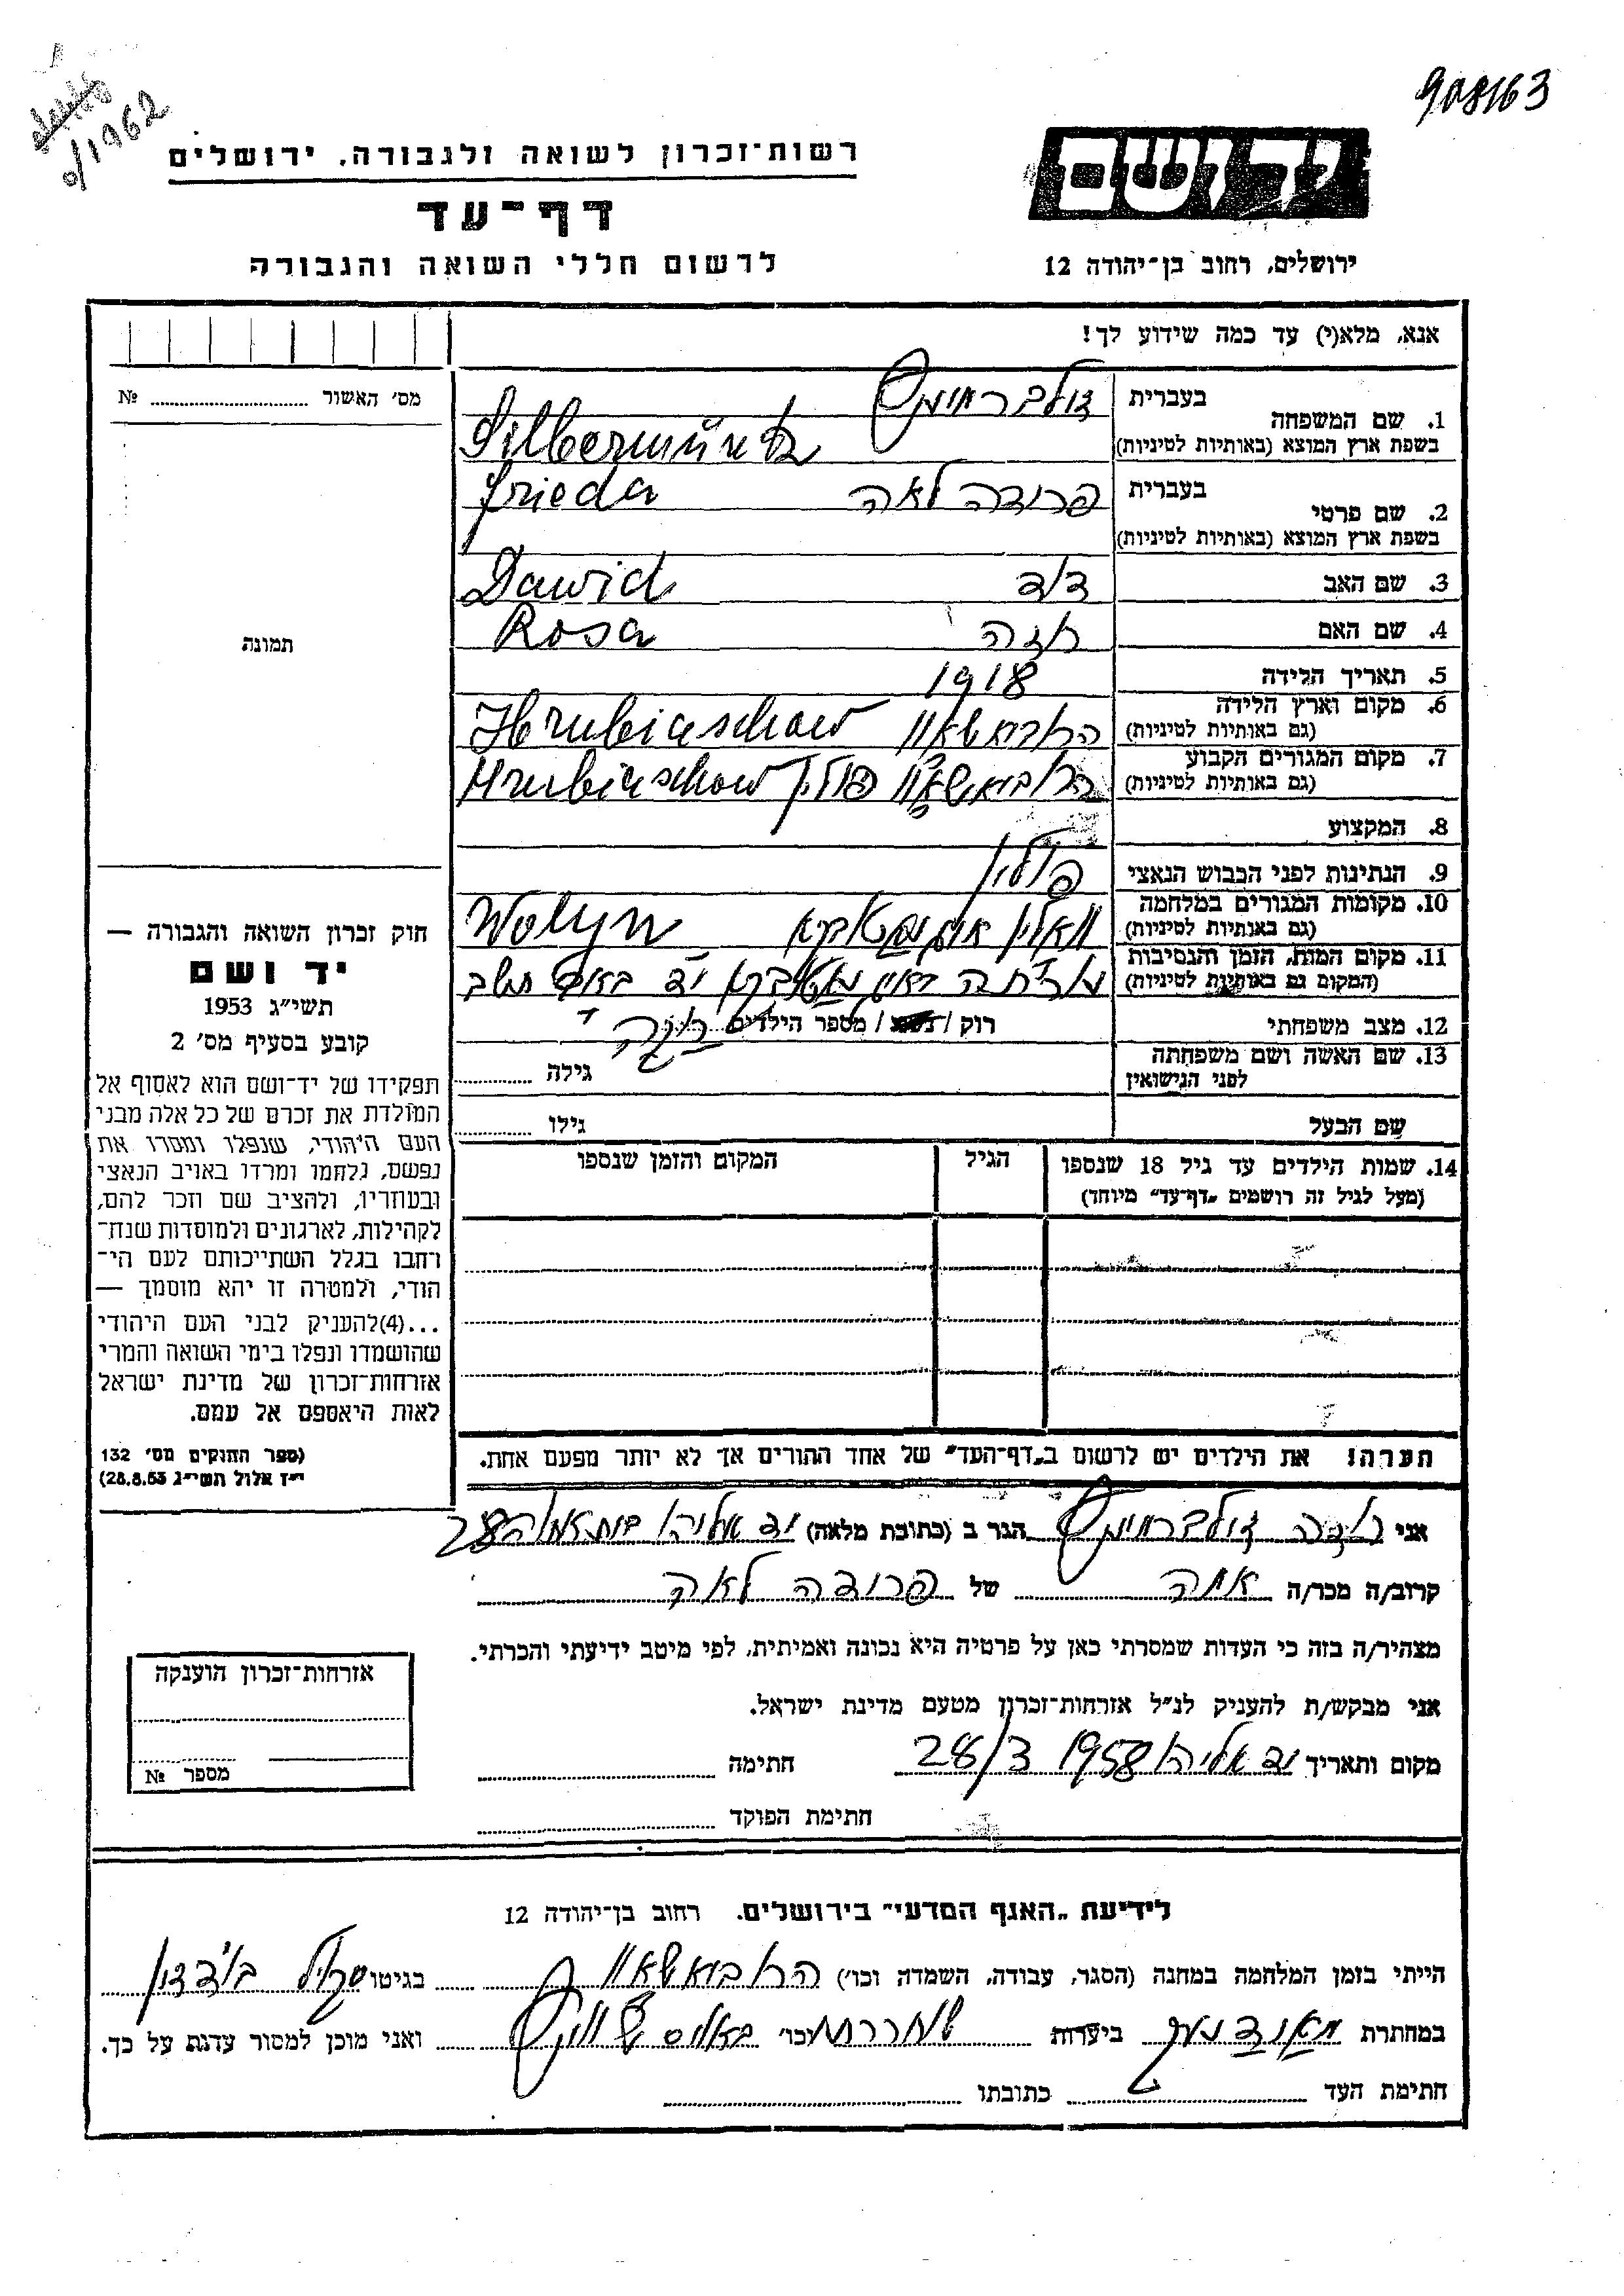 908163
0/1962
יד ושם
רשות־זכרון לשואה ולגבורה, ירושלים
דף־עד
לרשום חללי השואה והגבורה
ירושלים, רחוב בן־יהודה 12
אנא, מלא(י) עד כמה שידוע לך!
מס' האשור № 
תמונה
1. שם המשפחה בעברית
בשפת ארץ המוצא (באותיות לטיניות) Silbermüntz
2. שם פרטי בעברית פרודה לאה Frieda
בשפת ארץ המוצא (באותיות לטיניות)
3. שם האב דוד Dawid
4. שם האם רוזה Rosa
5. תאריך הלידה 1918
6. מקום וארץ הלידה Hrubieschow
(גם באותיות לטיניות)
7. מקום המגורים הקבוע פולין Hrubieschow
(גם באותיות לטיניות)
8. המקצוע
9. הנתינות לפני הכבוש הנאצי פולין
10. מקומות המגורים במלחמה Wolyn
(גם באותיות לטיניות)
11. מקום המות, הזמן והנסיבות
(המקום גם באותיות לטיניות)
12. מצב משפחתי רוק / נשוי / מספר הילדים
13. שם האשה ושם משפחתה
לפני הנישואין גילה
שם הבעל גילו
14. שמות הילדים עד גיל 18 שנספו הגיל המקום והזמן שנספו
(מעל לגיל זה רושמים "דף־עד" מיוחד)
הערה! את הילדים יש לרשום ב"דף־העד" של אחד ההורים אך לא יותר מפעם אחת.
חוק זכרון השואה והגבורה —
יד ושם
תשי"ג 1953
קובע בסעיף מס' 2
תפקידו של יד־ושם הוא לאסוף אל
המולדת את זכרם של כל אלה מבני
העם היהודי, שנפלו ומסרו את
נפשם, נלחמו ומרדו באויב הנאצי
ובעוזריו, ולהציב שם וזכר להם,
לקהילות, לארגונים ולמוסדות שנח־
רחבו בגלל השתייכותם לעם הי־
הודי, ולמטרה זו יהא מוסמך —
...(4)להעניק לבני העם היהודי
שהושמדו ונפלו בימי השואה והמרי
אזרחות־זכרון של מדינת ישראל
לאות היאספם אל עמם.
(ספר החוקים מס' 132
י"ז אלול תשי"ג 28.8.53)
אני רוזה הגר ב (כתובת מלאה) יד אליהו 28
קרוב/ה מכר/ה של פרודה לאה
מצהיר/ה בזה כי העדות שמסרתי כאן על פרטיה היא נכונה ואמיתית, לפי מיטב ידיעתי והכרתי.
אני מבקש/ת להעניק לנ"ל אזרחות־זכרון מטעם מדינת ישראל.
מקום ותאריך יד אליהו 28/3 1958 חתימה
חתימת הפוקד
אזרחות־זכרון הוענקה
מספר №
לידיעת "האגף המדעי" בירושלים, רחוב בן־יהודה 12
הייתי בזמן המלחמה במחנה (הסגר, עבודה, השמדה וכו') בגיטו
במחתרת ביערות וכו' ואני מוכן למסור עדות על כך.
חתימת העד כתובתו